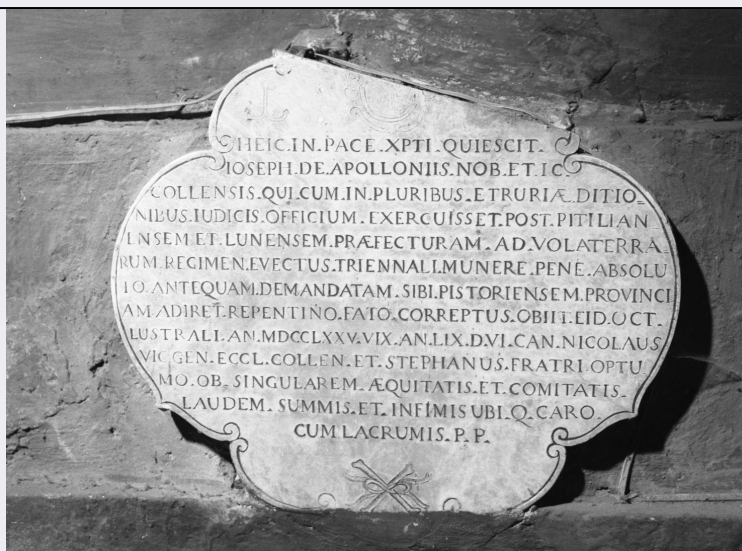 HEIC.IN.PACE.XPTI.QUIESCIT.
IOSEPH.DE.APOLLONIIS.NOB.ET.IC
COLLENSIS.QUI.CUM.IN.PLURIBUS.ETRURIÆ.DITIO
NIBUS.IUDICIS.OFFICIUM.EXERCUISSET.POST.PITILIAN
ENSEM.ET.LUNENSEM.PRÆFECTURAM.AD.VOLATERRA
RUM.REGIMEN.EVECTUS.TRIENNALI.MUNERE.PENE.ABSOLU
TO.ANTEQUAM.DEMANDATAM.SIBI.PISTORIENSEM.PROVINCI
AM.ADIRET.REPENTINO.FATO.CORREPTUS.OBIIT.EID.OCT.
LUSTRALI.AN.MDCCLXXV.VIX.AN.LIX.D.VI.CAN.NICOLAUS
VIC.GEN.ECCL.COLLEN.ET.STEPHANUS.FRATRI.OPTU
MO.OB.SINGULAREM.ÆQUITATIS.ET.COMITATIS.
LAUDEM.SUMMIS.ET.INFIMIS.UBI.Q.CARO.
CUM LACRUMIS.P.P.